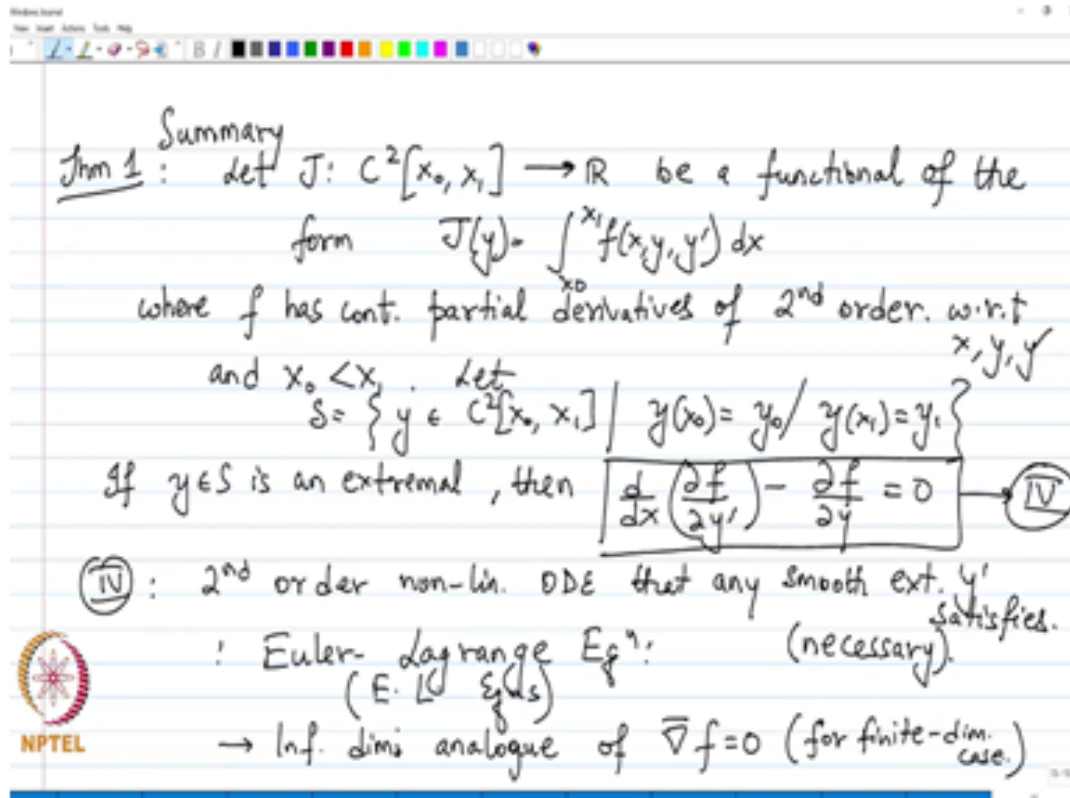 Windows Journal
View Insert Actions Tools Help
B I
Summary
Thm 1 : Let J: C²[x₀, x₁] → ℝ be a functional of the
form J(y) = ∫_{x₀}^{x₁} f(x,y,y') dx
where f has cont. partial derivatives of 2nd order. w.r.t
x, y, y'
and x₀ < x₁ . Let
S = { y ∈ C²[x₀, x₁] | y(x₀) = y₀ / y(x₁) = y₁ }
If y ∈ S is an extremal , then d/dx (∂f/∂y') - ∂f/∂y = 0 → IV
IV : 2nd order non-lin. ODE that any smooth ext. y'
satisfies.
: Euler- Lagrange Eqⁿ: (necessary).
(E. L Eqns)
→ Inf. dim. analogue of ∇̄f = 0 (for finite-dim.
case.)
NPTEL